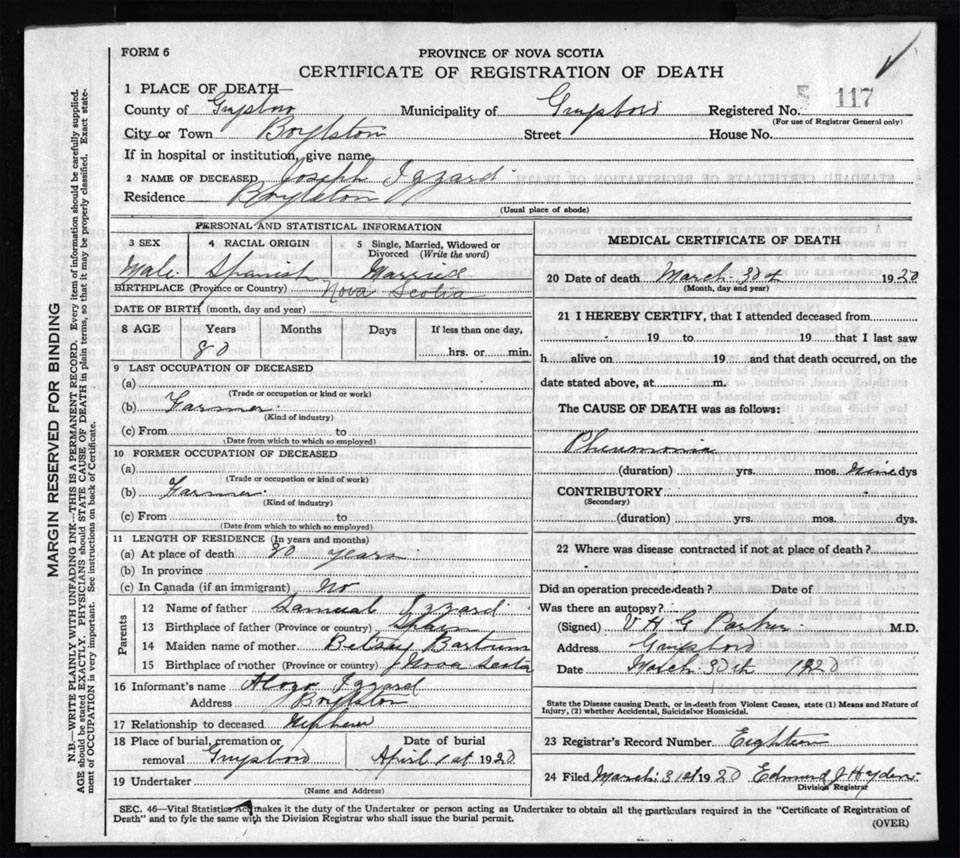 FORM 6
PROVINCE OF NOVA SCOTIA
CERTIFICATE OF REGISTRATION OF DEATH
1 PLACE OF DEATH—
County of Guysboro Municipality of Guysboro Registered No. 5 117
(For use of Registrar General only)
City or Town Boylston Street House No.
If in hospital or institution, give name
2 NAME OF DECEASED Joseph Izzard
Residence Boylston
(Usual place of abode)
PERSONAL AND STATISTICAL INFORMATION
3 SEX 4 RACIAL ORIGIN 5 Single, Married, Widowed or Divorced (Write the word)
Male Spanish Married
BIRTHPLACE (Province or Country) Nova Scotia
DATE OF BIRTH (month, day and year)
8 AGE Years Months Days If less than one day,
80 hrs. or min.
9 LAST OCCUPATION OF DECEASED
(a)
(Trade or occupation or kind or work)
(b) Farmer
(Kind of industry)
(c) From to
(Date from which to which so employed)
10 FORMER OCCUPATION OF DECEASED
(a)
(Trade or occupation or kind of work)
(b) Farmer
(Kind of industry)
(c) From to
(Date from which to which so employed)
11 LENGTH OF RESIDENCE (In years and months)
(a) At place of death 80 years
(b) In province
(c) In Canada (if an immigrant) No
Parents
12 Name of father Samuel Izzard
13 Birthplace of father (Province or country) Spain
14 Maiden name of mother Betsay Bartrum
15 Birthplace of mother (Province or country) Nova Scotia
16 Informant's name Izzard
Address Boylston
17 Relationship to deceased Nephew
18 Place of burial, cremation or removal Guysboro
Date of burial April 1st 1920
19 Undertaker
(Name and Address)
MEDICAL CERTIFICATE OF DEATH
20 Date of death March 30th 1920
(Month, day and year)
21 I HEREBY CERTIFY, that I attended deceased from
19 to 19 that I last saw
h alive on 19 and that death occurred, on the
date stated above, at m.
The CAUSE OF DEATH was as follows:
Pheumonia
(duration) yrs. mos. nine dys
CONTRIBUTORY
(Secondary)
(duration) yrs. mos. dys.
22 Where was disease contracted if not at place of death?
Did an operation precede death? Date of
Was there an autopsy?
(Signed) V H G Parker M.D.
Address Guysboro
Date March 30th 1920
State the Disease causing Death, or in death from Violent Causes, state (1) Means and Nature of
Injury, (2) whether Accidental, Suicidal or Homicidal.
23 Registrar's Record Number Eighteen
24 Filed March 31st 1920 Edmund J Hyden
Division Registrar
SEC. 46—Vital Statistics Act makes it the duty of the Undertaker or person acting as Undertaker to obtain all the particulars required in the "Certificate of Registration of
Death" and to fyle the same with the Division Registrar who shall issue the burial permit.
(OVER)
MARGIN RESERVED FOR BINDING
N.B.—WRITE PLAINLY WITH UNFADING INK—THIS IS A PERMANENT RECORD. Every item of information should be carefully supplied.
AGE should be stated EXACTLY. PHYSICIANS should STATE CAUSE OF DEATH in plain terms, so that it may be properly classified. Exact state-
ment of OCCUPATION is very important. See instructions on back of Certificate.